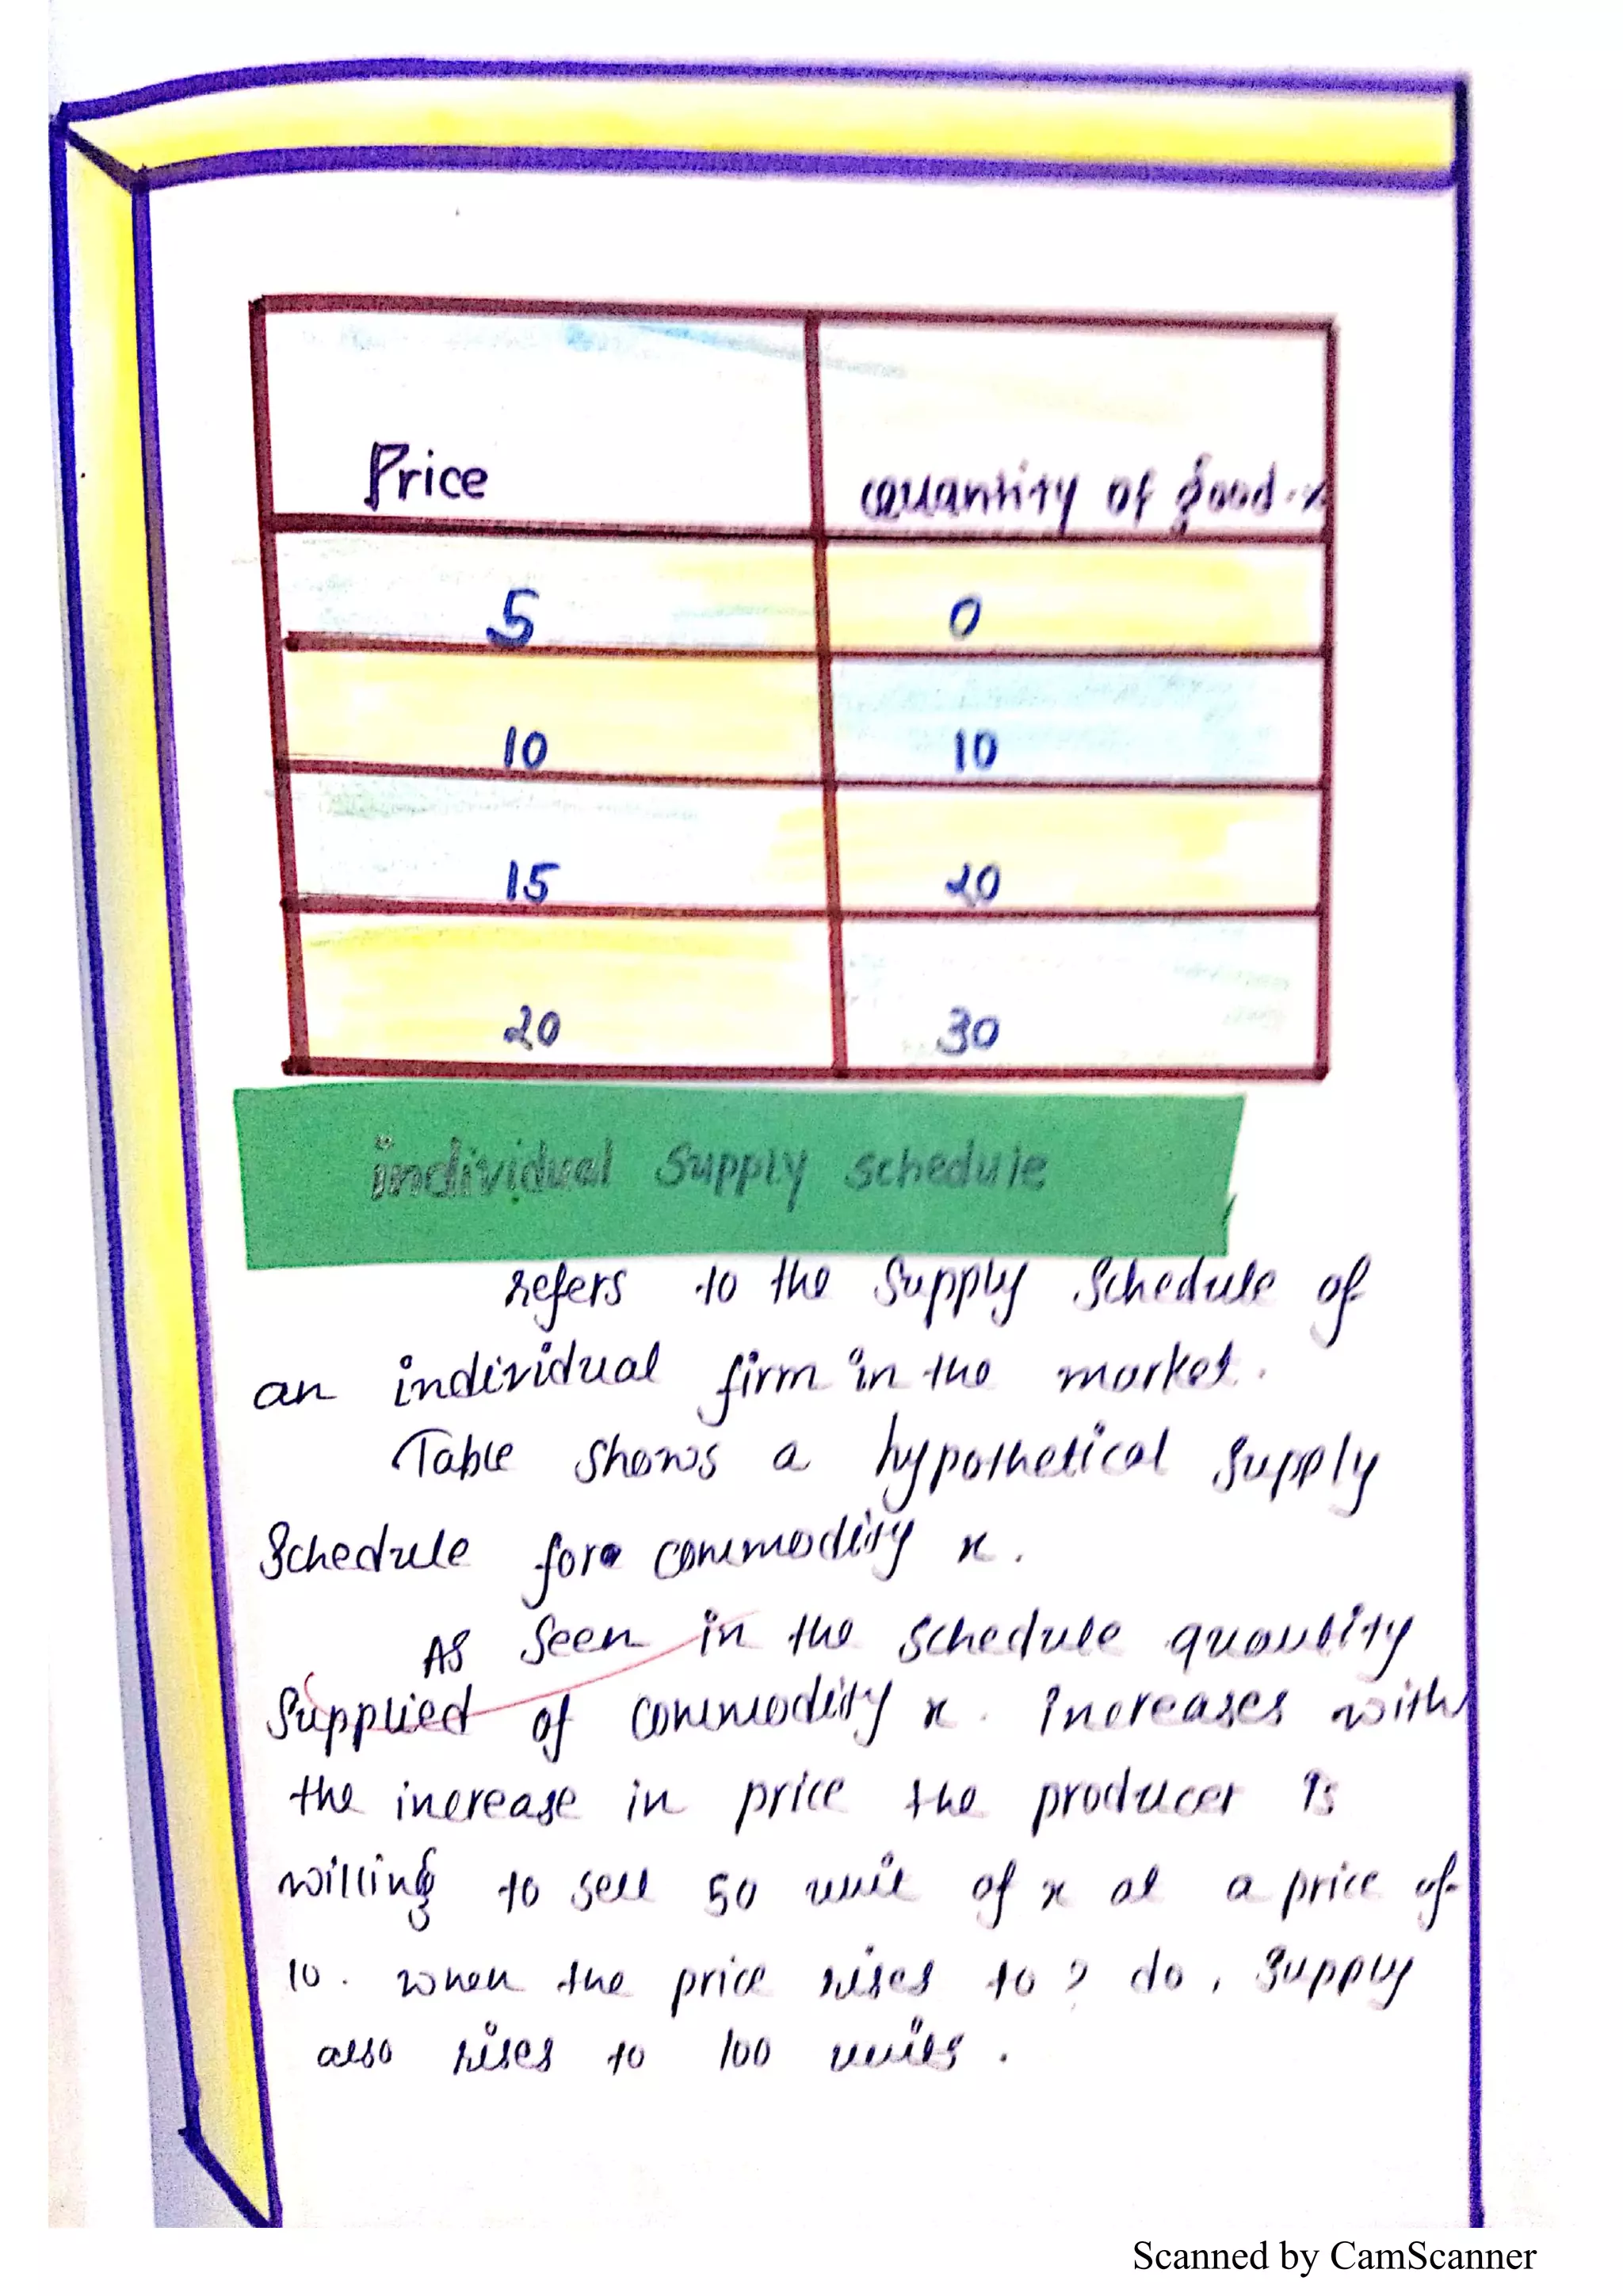 Price quantity of good-x
5 0
10 10
15 20
20 30
individual supply schedule
refers to the Supply Schedule of
an individual firm in the market.
Table shows a hypothetical supply
Schedule for commodity x.
As Seen in the schedule quantity
Supplied of commodity x. increases with
the increase in price the producer is
willing to sell 50 unit of x at a price of
10. when the price rises to ? do, supply
also rises to 100 units.
Scanned by CamScanner